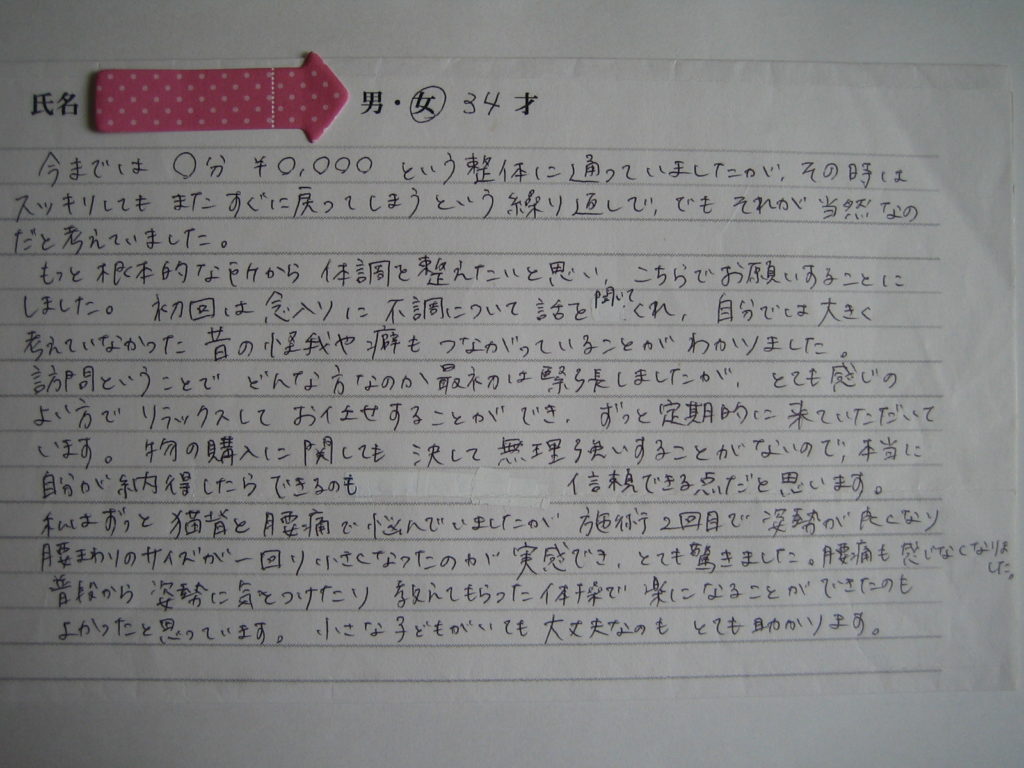 氏名 男・女 34 才
今までは 〇分 ¥0,000 という整体に通っていましたが、その時は
スッキリしても またすぐに戻ってしまうという繰り返しで、でも それが当然なの
だと考えていました。
もっと根本的な所から 体調を整えたいと思い、こちらでお願いすることに
しました。 初回は念入りに 不調について話を聞いてくれ、自分では大きく
考えていなかった 昔の怪我や癖も つながっていることが わかりました。
訪問ということで どんな方なのか最初は緊張しましたが、とても感じの
よい方で リラックスして お任せすることができ、ずっと定期的に来ていただいて
います。 物の購入に関しても 決して無理強いすることがないので、本当に
自分が納得したらできるのも 信頼できる点だと思います。
私はずっと 猫背と腰痛で悩んでいましたが 施術2回目で姿勢が良くなり
腰まわりのサイズが一回り小さくなったのが 実感でき、とても驚きました。腰痛も感じなくなりました。
普段から 姿勢に気をつけたり 教えてもらった体操で 楽になることができたのも
よかったと思っています。 小さな子どもがいても 大丈夫なのも とても助かります。